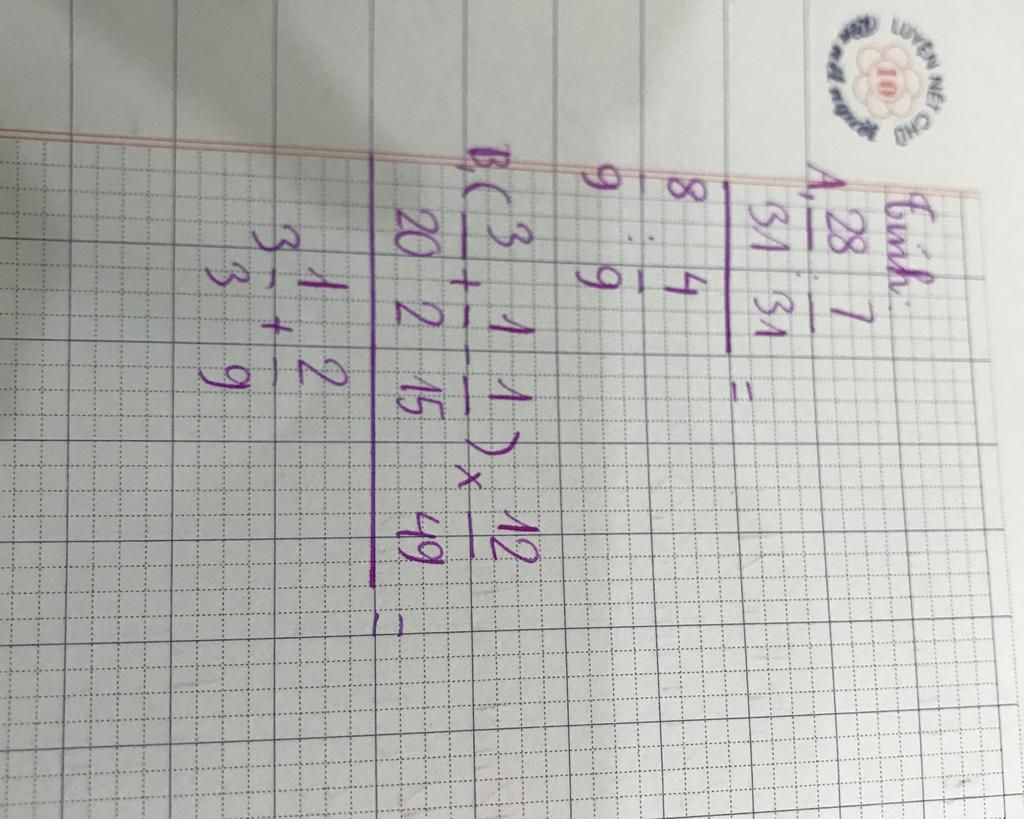 LUYỆN NÉT CHỮ
10
Tính:
A, 28/31 : 7/31
8/9 : 4/9 =
B, (3/20 + 1/2 - 1/15) x 12/49
3 1/3 + 2/9 =